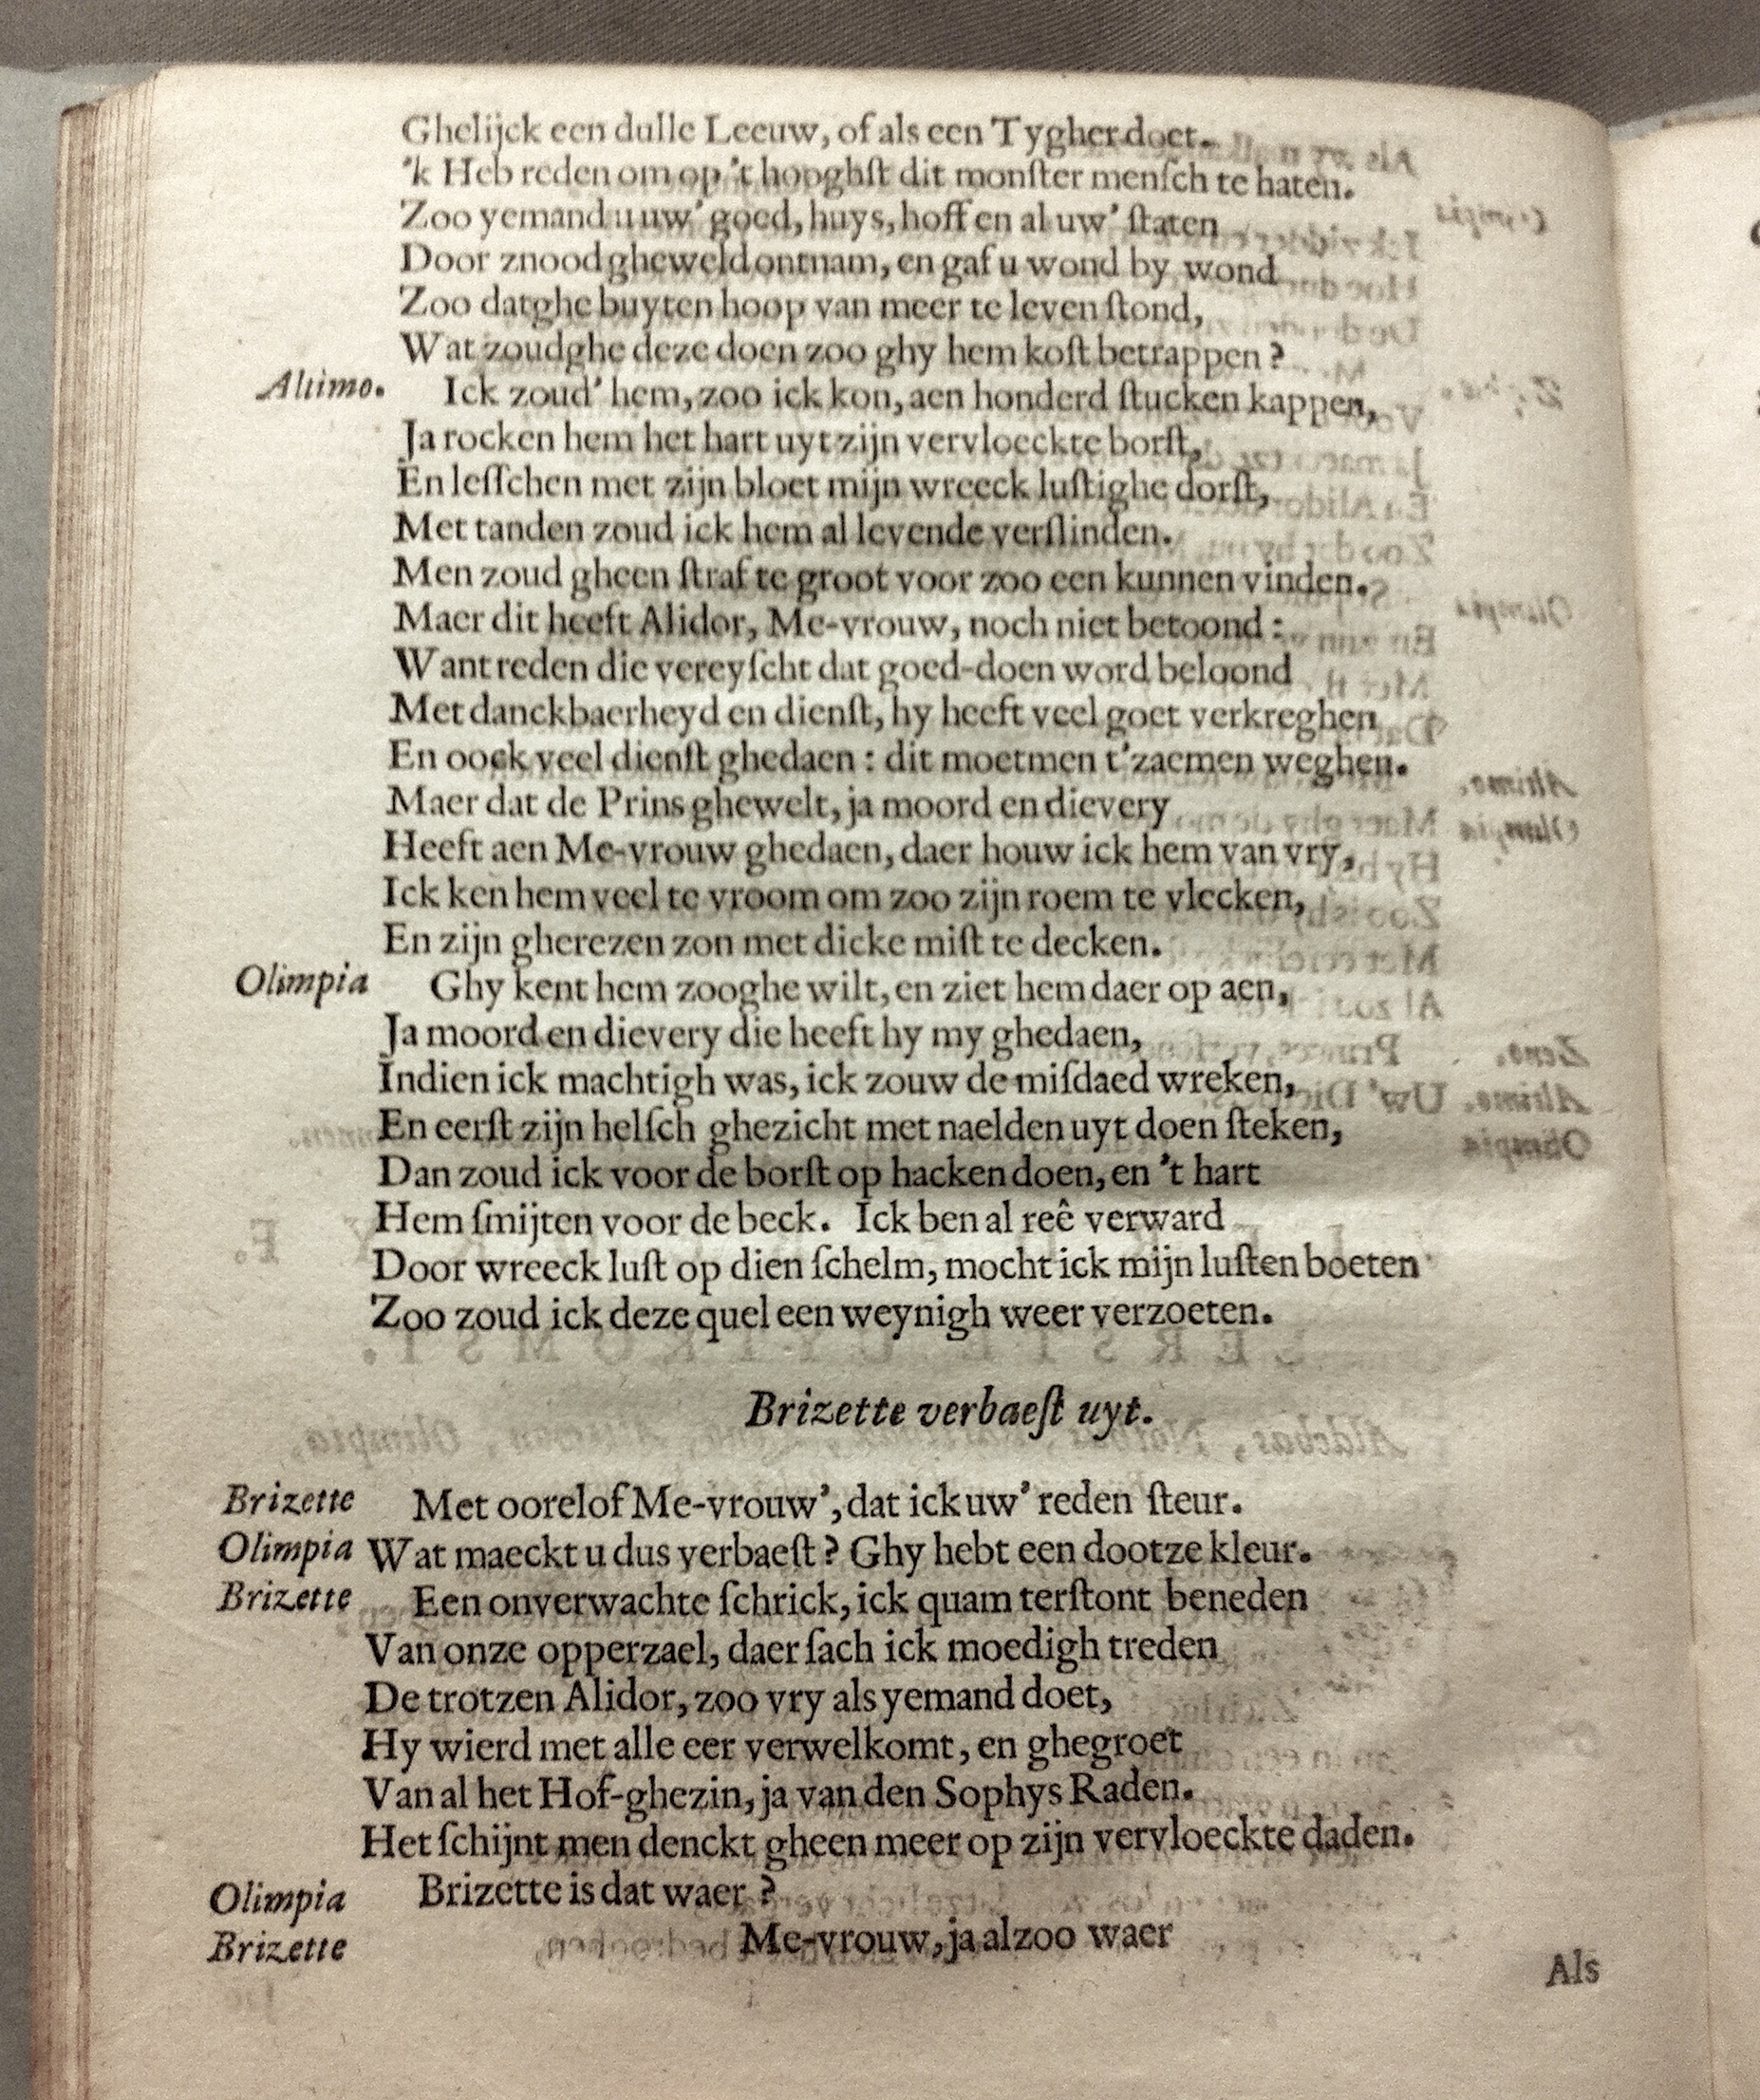 Ghelijck een dulle Leeuw, of als een Tygher doet.
'k Heb reden om op 't hooghſt dit monſter menſch te haten.
Zoo yemand u uw' goed, huys, hoff en al uw' ſtaten
Door znood gheweld ontnam, en gaf u wond by wond
Zoo datghe buyten hoop van meer te leven ſtond,
Wat zoudghe deze doen zoo ghy hem koſt betrappen?
Altimo. Ick zoud' hem, zoo ick kon, aen honderd ſtucken kappen,
Ja rocken hem het hart uyt zijn vervloeckte borſt,
En leſſchen met zijn bloet mijn wreeck luſtighe dorſt,
Met tanden zoud ick hem al levende verſlinden.
Men zoud gheen ſtraf te groot voor zoo een kunnen vinden.
Maer dit heeft Alidor, Me-vrouw, noch niet betoond:
Want reden die vereyſcht dat goed-doen word beloond
Met danckbaerheyd en dienſt, hy heeft veel goet verkreghen
En oock veel dienſt ghedaen: dit moetmen t'zaemen weghen.
Maer dat de Prins ghewelt, ja moord en dievery
Heeft aen Me-vrouw ghedaen, daer houw ick hem van vry,
Ick ken hem veel te vroom om zoo zijn roem te vlecken,
En zijn gherezen zon met dicke miſt te decken.
Olimpia Ghy kent hem zooghe wilt, en ziet hem daer op aen,
Ja moord en dievery die heeft hy my ghedaen,
Indien ick machtigh was, ick zouw de miſdaed wreken,
En eerſt zijn helſch ghezicht met naelden uyt doen ſteken,
Dan zoud ick voor de borſt op hacken doen, en 't hart
Hem ſmijten voor de beck. Ick ben al reê verward
Door wreeck luſt op dien ſchelm, mocht ick mijn luſten boeten
Zoo zoud ick deze quel een weynigh weer verzoeten.
Brizette verbaeſt uyt.
Brizette Met oorelof Me-vrouw', dat ick uw' reden ſteur.
Olimpia Wat maeckt u dus verbaeſt? Ghy hebt een dootze kleur.
Brizette Een onverwachte ſchrick, ick quam terſtont beneden
Van onze opperzael, daer ſach ick moedigh treden
De trotzen Alidor, zoo vry als yemand doet,
Hy wierd met alle eer verwelkomt, en ghegroet
Van al het Hof-ghezin, ja van den Sophys Raden.
Het ſchijnt men denckt gheen meer op zijn vervloeckte daden.
Olimpia Brizette is dat waer?
Brizette Me-vrouw, ja alzoo waer
Als